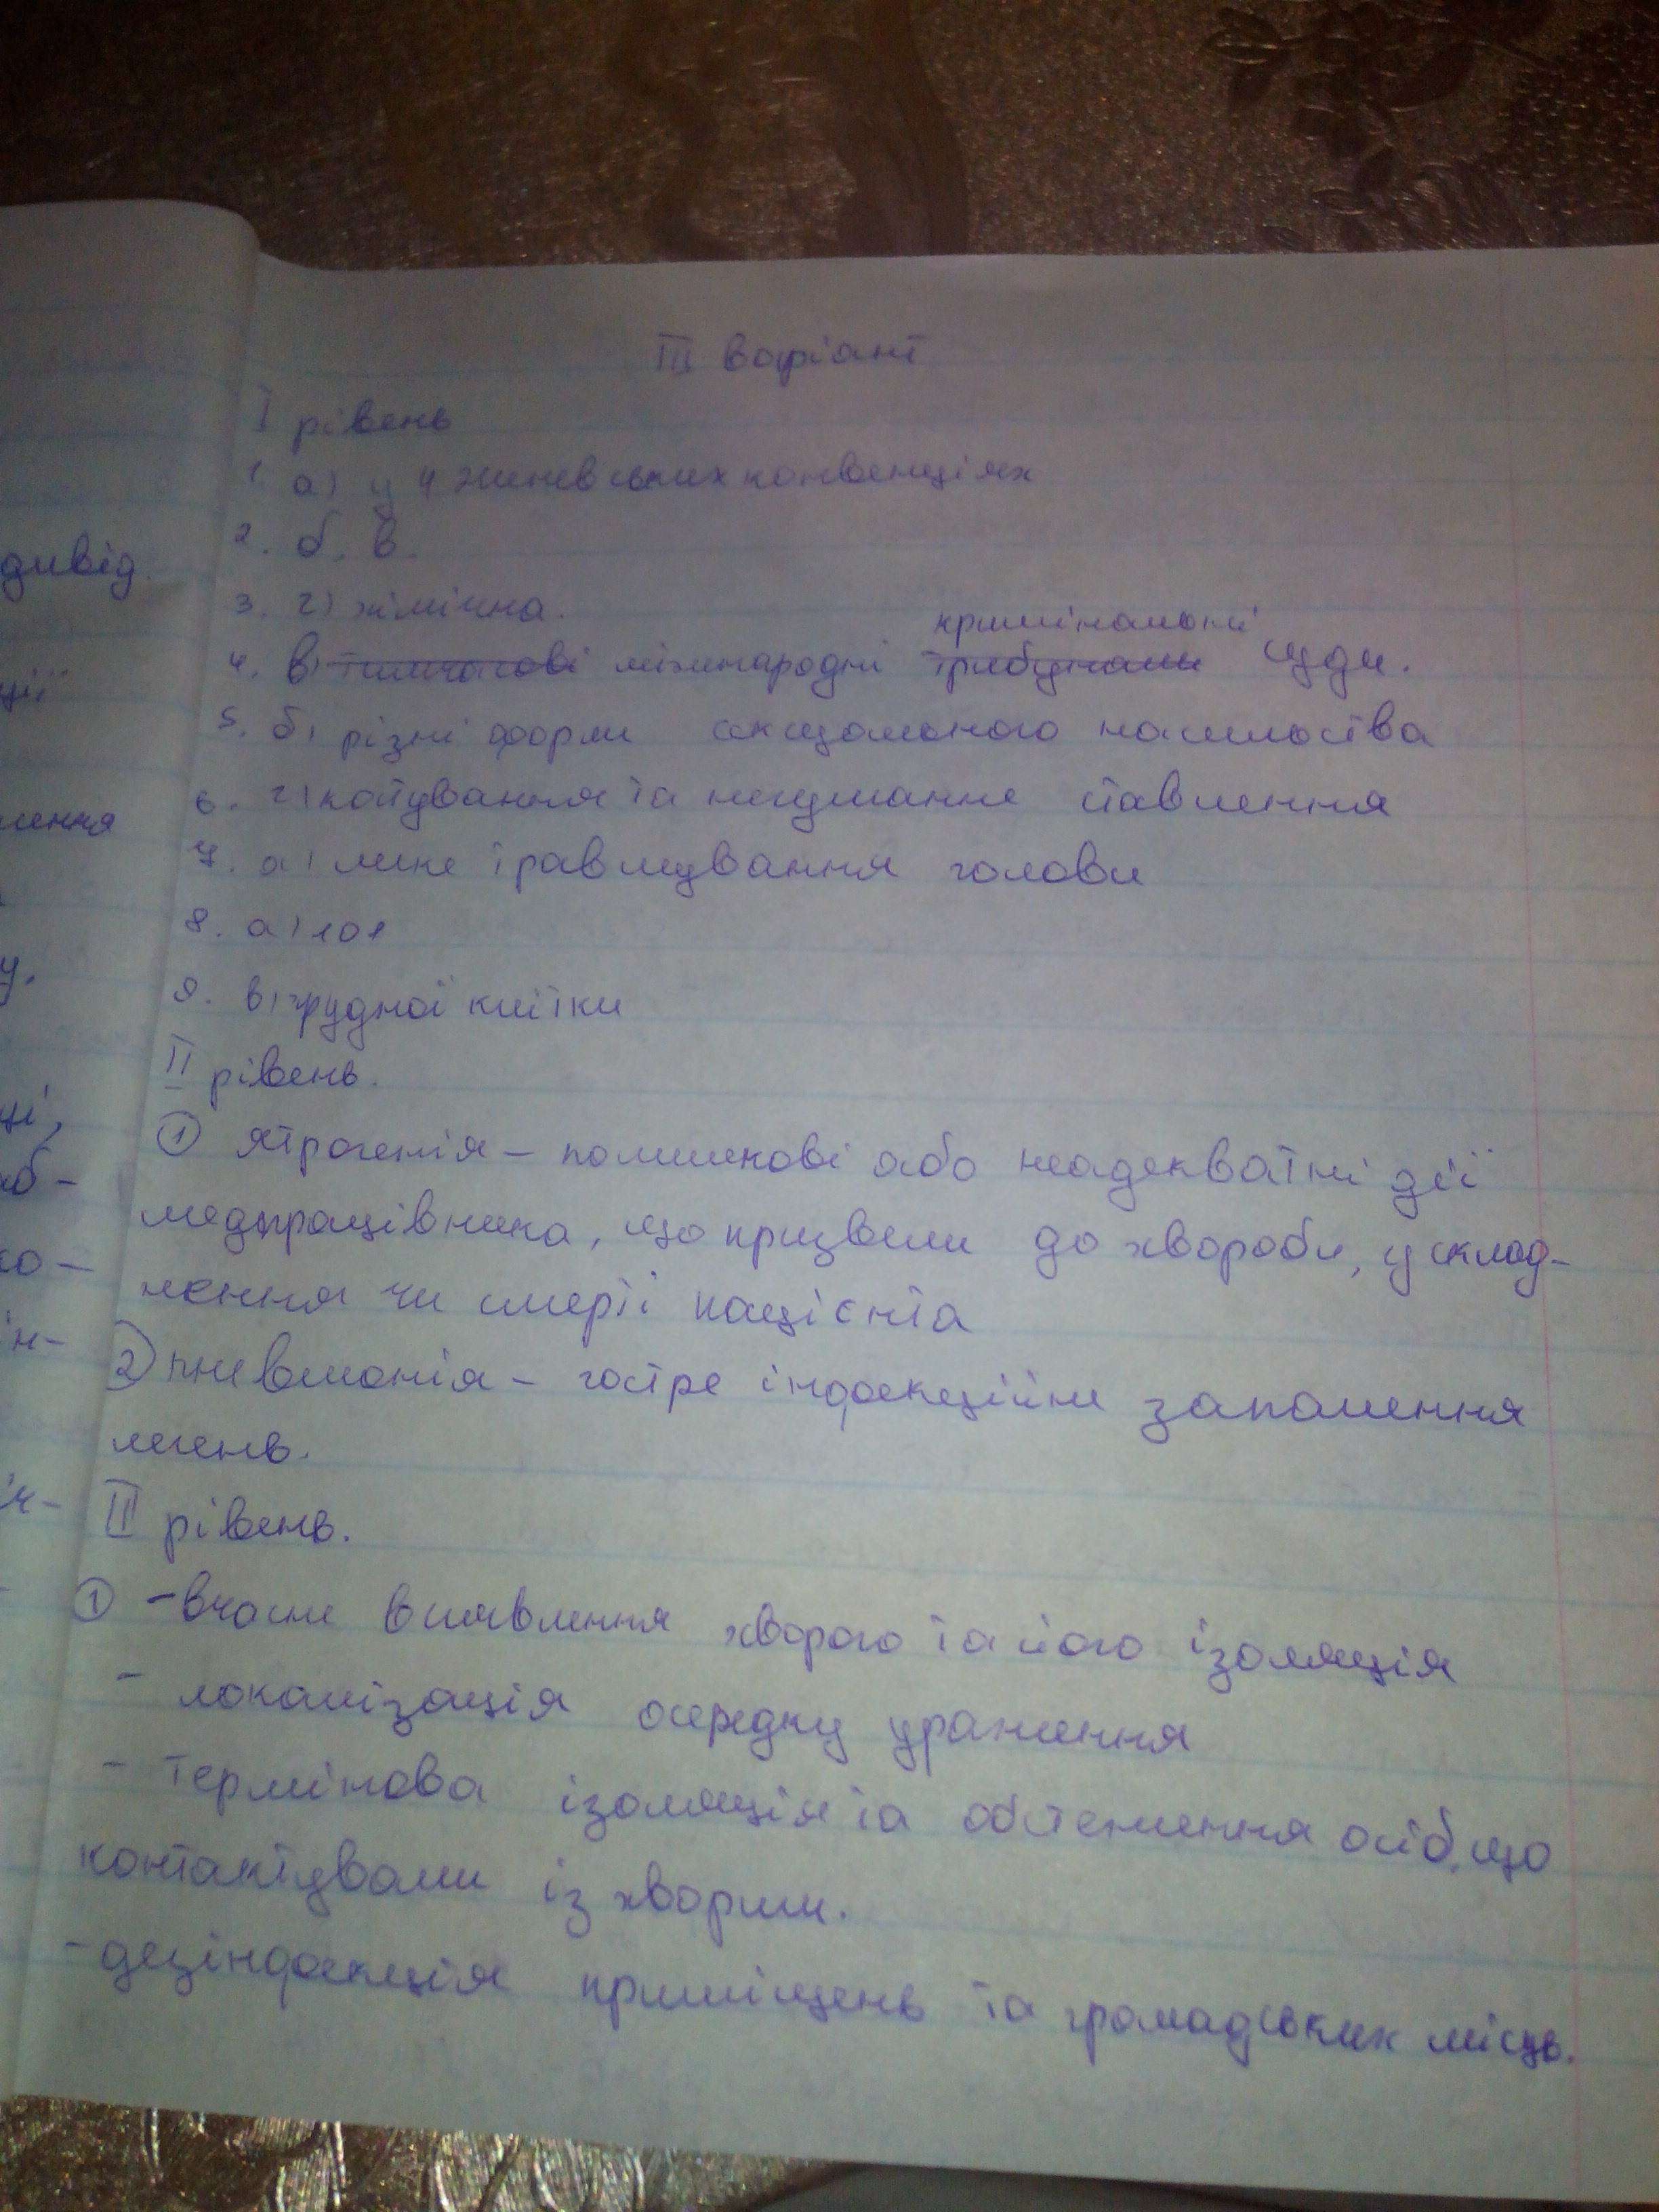 III варіант
I рівень
1. а) у 4 женевських конвенціях
2. б. в.
3. г) хімічна.
кримінальні
4. в) тимчасові міжнародні трибунали суди.
5. б) різні форми сексуального насильства
6. г) катування та негуманне ставлення
7. а) легке травмування голови
8. а) 101
9. в) грудної клітки
II рівень.
1 Ятрогенія – помилкові або неадекватні дії
медпрацівника, що призвели до хвороби, усклад-
нення чи смерті пацієнта
2) пневмонія – гостре інфекційне запалення
легень.
III рівень.
1 - вчасне виявлення хворого та його ізоляція
- локалізація осередку ураження
- термінова ізоляція та обстеження осіб, що
контактували із хворим.
- дезінфекція приміщень та громадських місць.
дивід
ції
лення
у.
ці,
об-
ко-
ін-